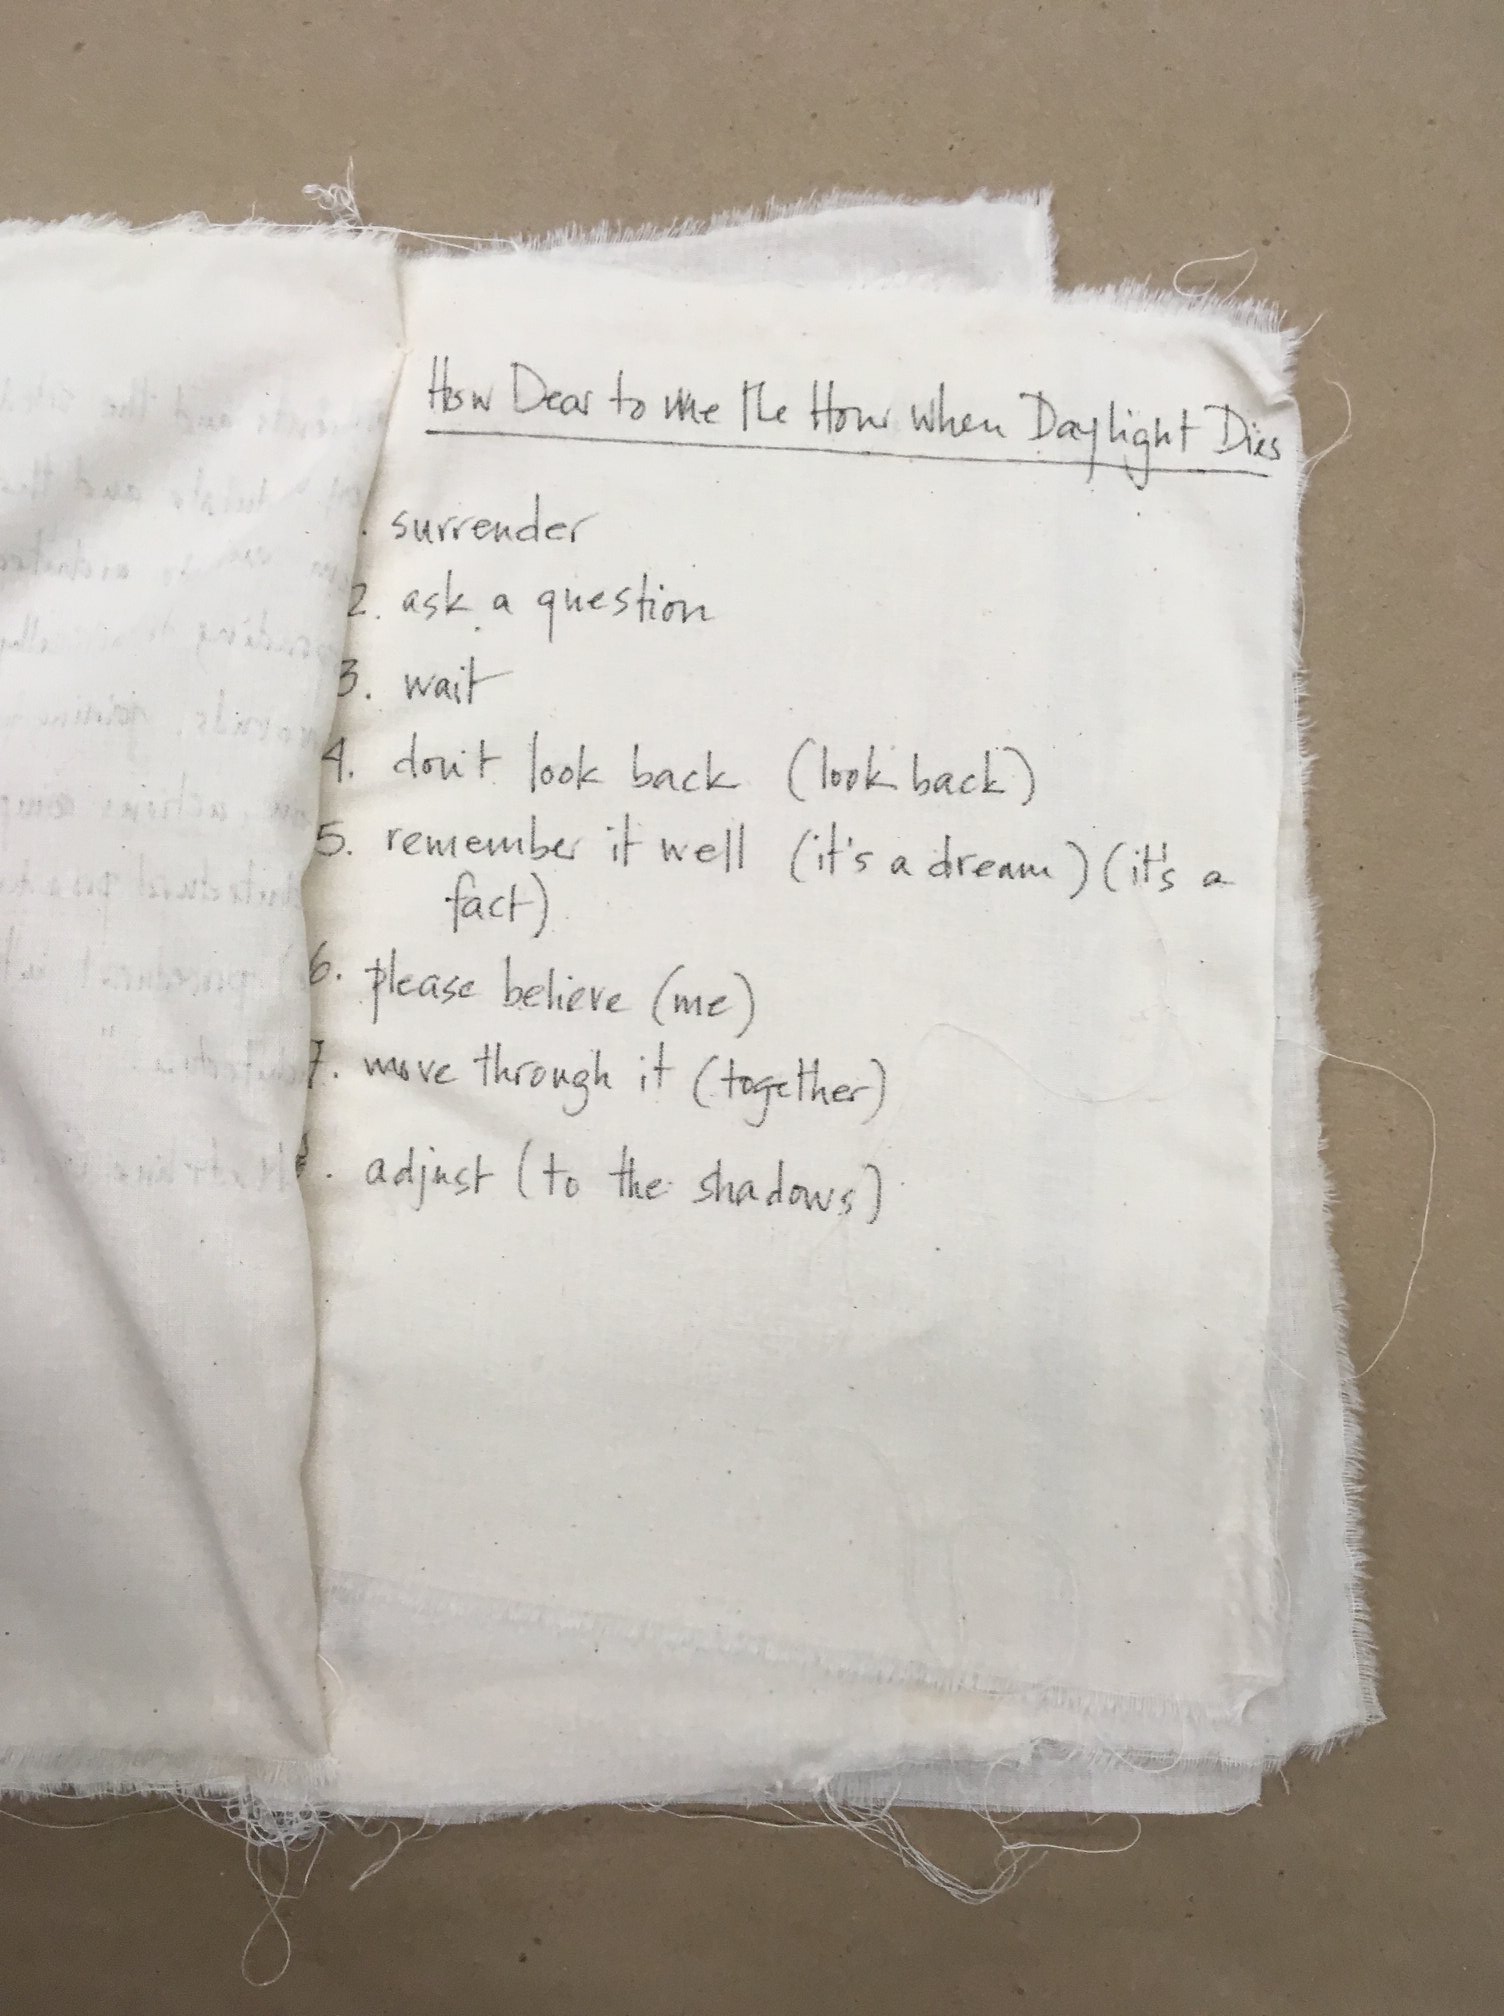 How Dear to me the Hour when Daylight Dies
. surrender
2. ask a question
3. wait
4. don't look back (look back)
5. remember it well (it's a dream) (it's a
fact)
6. please believe (me)
7. move through it (together)
8. adjust (to the shadows)